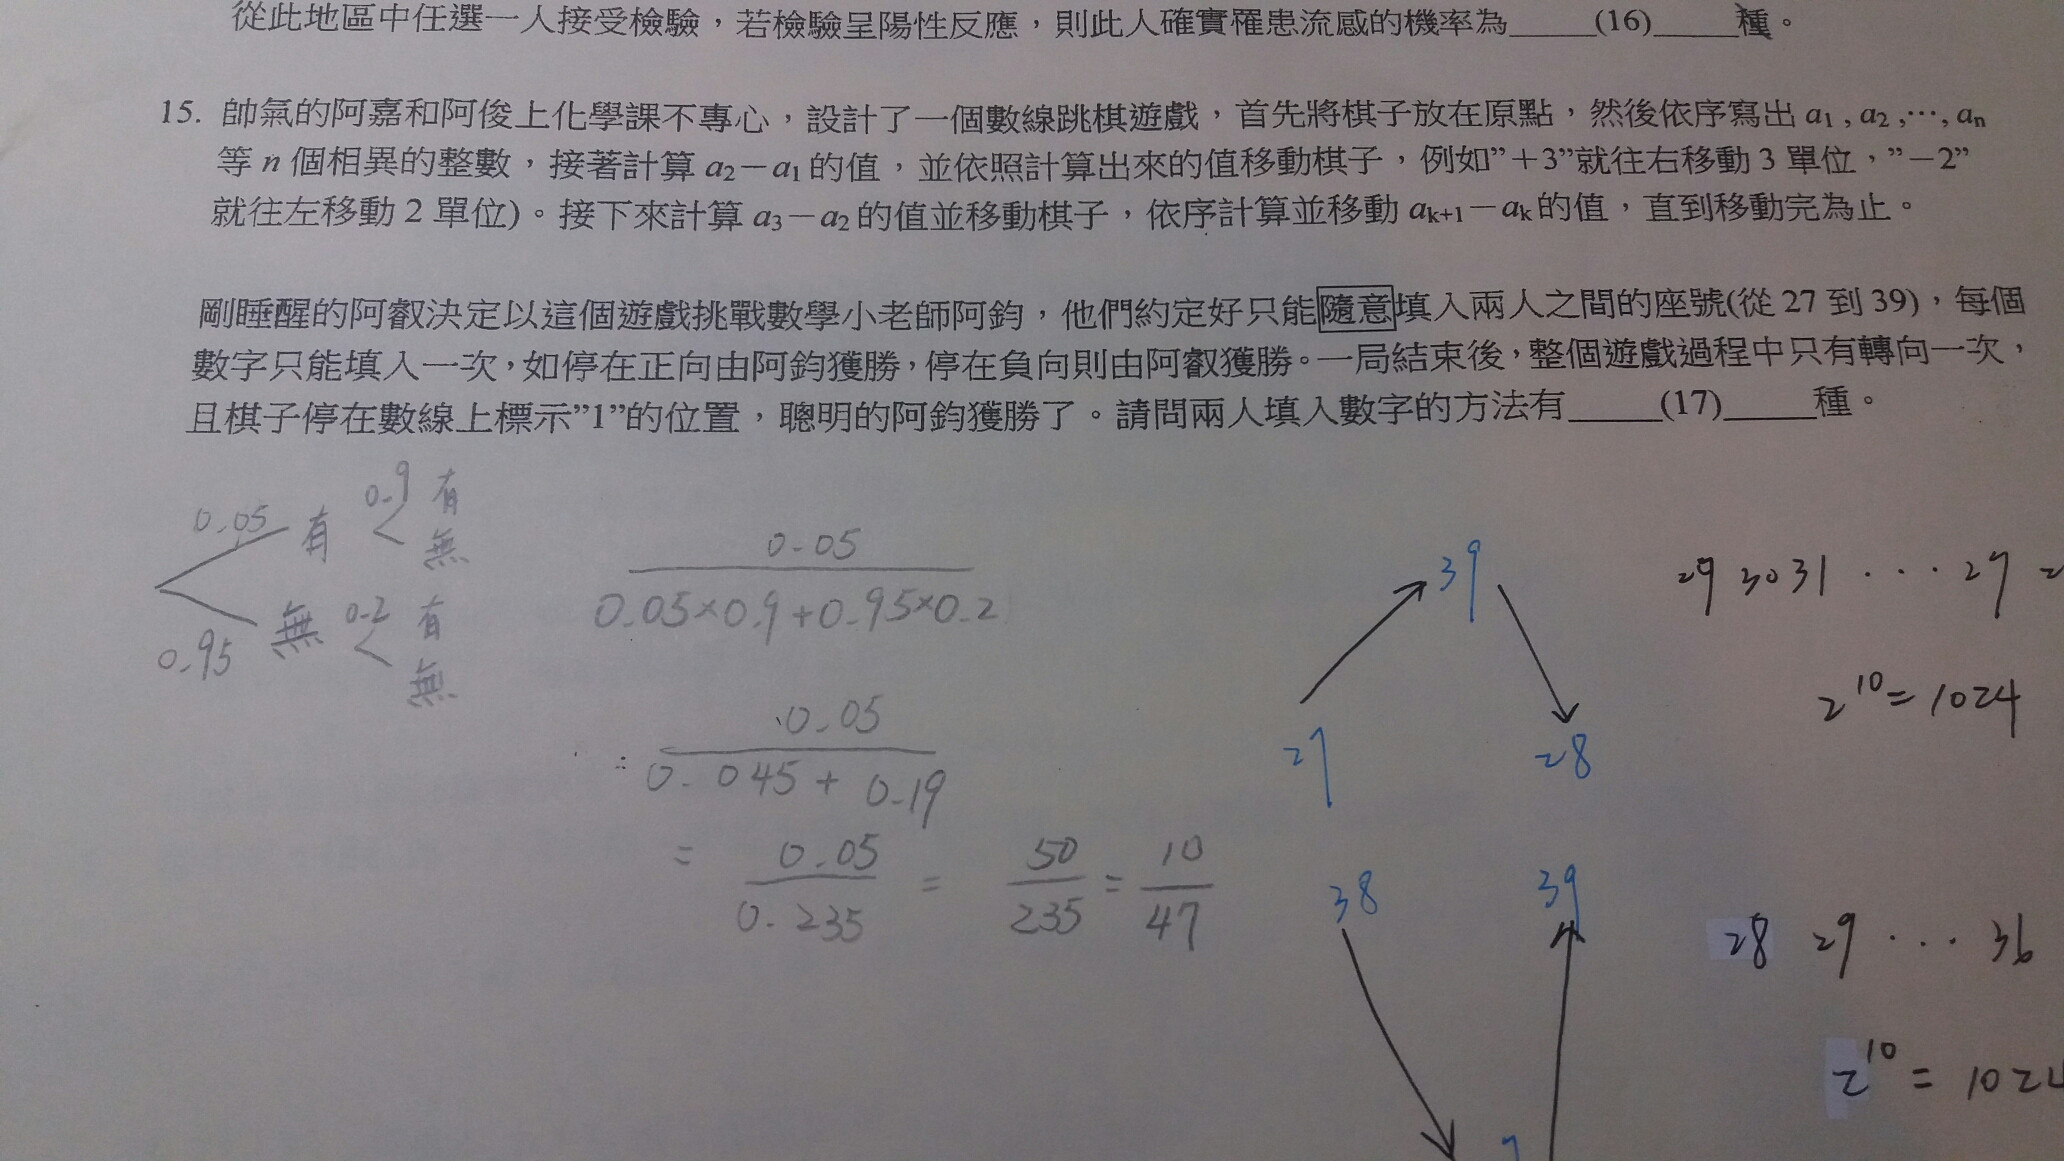 從此地區中任選一人接受檢驗，若檢驗呈陽性反應，則此人確實罹患流感的機率為_____(16)_____種。
15. 帥氣的阿嘉和阿俊上化學課不專心，設計了一個數線跳棋遊戲，首先將棋子放在原點，然後依序寫出 a1 , a2 ,⋯, an
等 n 個相異的整數，接著計算 a2－a1 的值，並依照計算出來的值移動棋子，例如”＋3”就往右移動 3 單位，”－2”
就往左移動 2 單位)。接下來計算 a3－a2 的值並移動棋子，依序計算並移動 ak+1－ak 的值，直到移動完為止。
剛睡醒的阿叡決定以這個遊戲挑戰數學小老師阿鈞，他們約定好只能隨意填入兩人之間的座號(從 27 到 39)，每個
數字只能填入一次，如停在正向由阿鈞獲勝，停在負向則由阿叡獲勝。一局結束後，整個遊戲過程中只有轉向一次，
且棋子停在數線上標示”1”的位置，聰明的阿鈞獲勝了。請問兩人填入數字的方法有_____(17)_____種。
0.05 有 0.9 有
無
0.95 無 0.2 有
無
0.05
0.05×0.9+0.95×0.2
0.05
0.045 + 0.19
= 0.05 = 50 = 10
0.235 235 47
39
27 28
29 30 31 ... 27
2^10 = 1024
38 39
28 29 ... 36
2^10 = 102